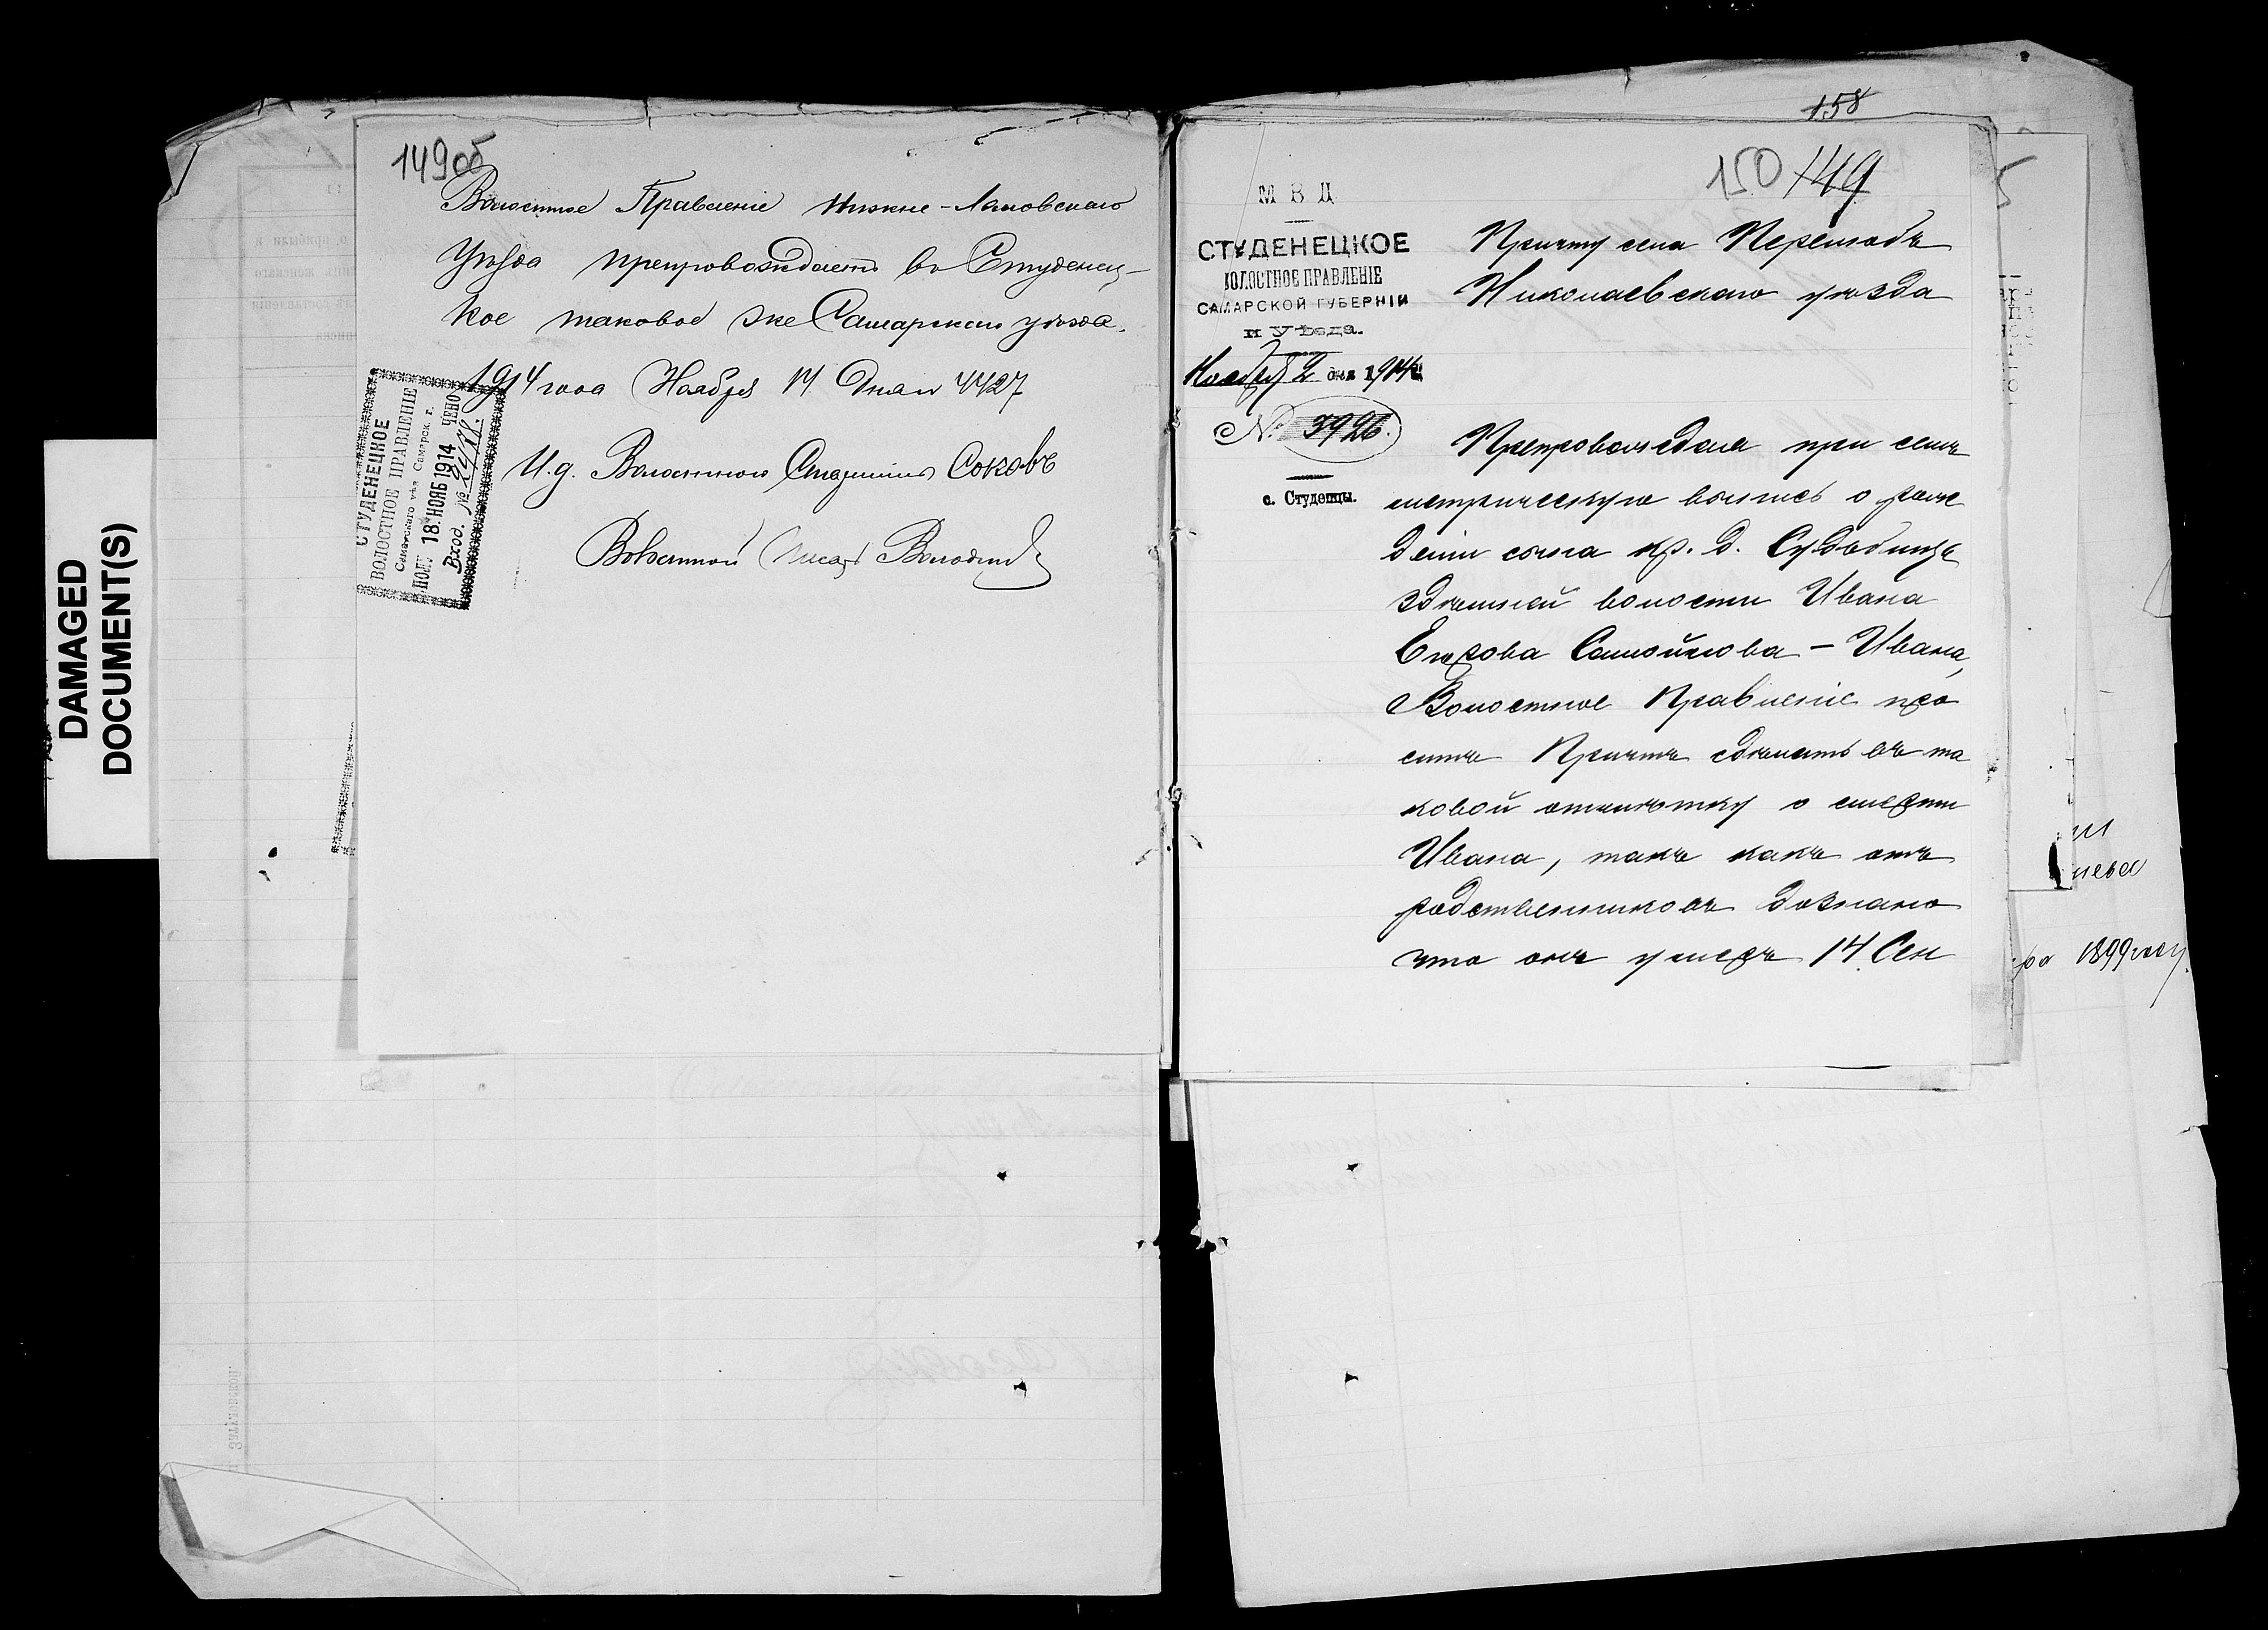 DAMAGED
DOCUMENT(S)
149об
Волостное Правленіе Нижне-Ломовскаго
Уѣзда препровождаетъ въ Студенец-
кое таковое же Самарскаго уѣзда.
1914 года Ноября 14 дня № 4427
И.д. Волостного Старшины Соковъ
Волостной Писарь Володинъ
СТУДЕНЕЦКОЕ
ВОЛОСТНОЕ ПРАВЛЕНІЕ
Самарскаго уѣз. Самарск. г.
ПОЛУ 18 НОЯБ 1914 ЧЕНО
Вход. №
158
150 149
М В Д
СТУДЕНЕЦКОЕ
ВОЛОСТНОЕ ПРАВЛЕНІЕ
САМАРСКОЙ ГУБЕРНІИ
и Уѣзда.
Ноября 2 дня 1914 г.
№ 3926.
с. Студенцы.
Причту села
Николаевскаго уѣзда
Препровождая при семъ
метрическую выпись о рож
деніи сына кр. д.
здѣшней волости Ивана
Егорова Самойлова – Ивана,
Волостное Правленіе про
ситъ Причтъ сдѣлать въ та
ковой отмѣтку о смерти
Ивана, такъ какъ отъ
родственниковъ дознано
что онъ умеръ 14 Сен
1899 году.